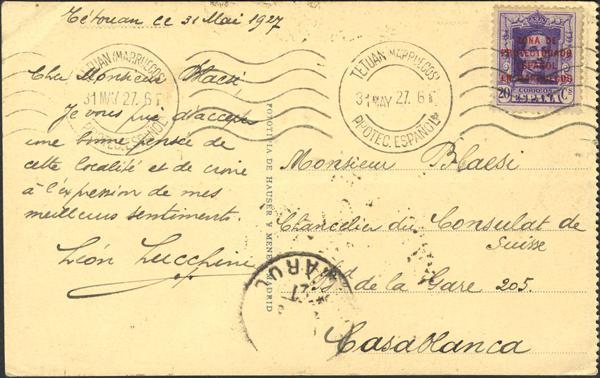 Tétouan le 31 Mai 1927
Cher Monsieur Blaesi
Je vous prie d'accepter
une bonne pensée de
cette localité et de croire
à l'expression de mes
meilleurs sentiments.
Léon Lucchini
TETUAN (MARRUECOS)
31 MAY 27. 6 T
TETUAN (MARRUECOS)
31 MAY 27. 6 T
PROTEC. ESPAÑOL
ZONA DE
PROTECTORADO
ESPAÑOL
EN MARRUECOS
CORREOS
20 ESPAÑA Cs
FOTOTIPIA DE HAUSER Y MENET MADRID
Monsieur Blaesi
Chancelier du Consulat de
Suisse
Bd de la Gare 205.
Casablanca